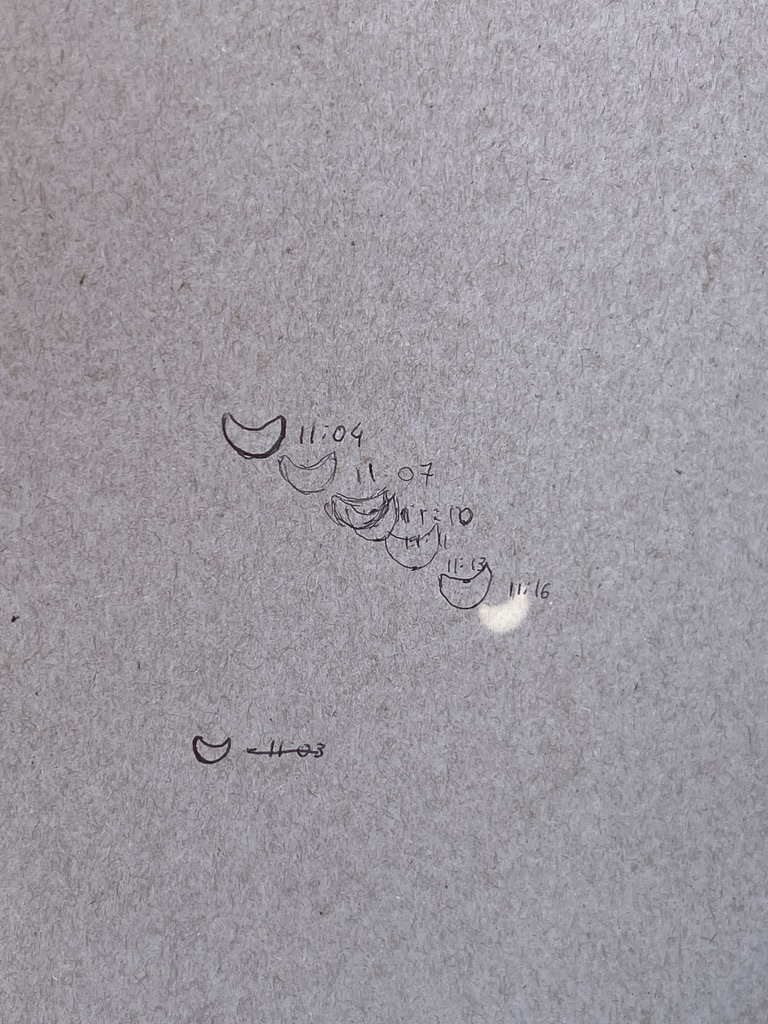 11:04
11:07
11:10
11:11
11:13
11:16
11 03